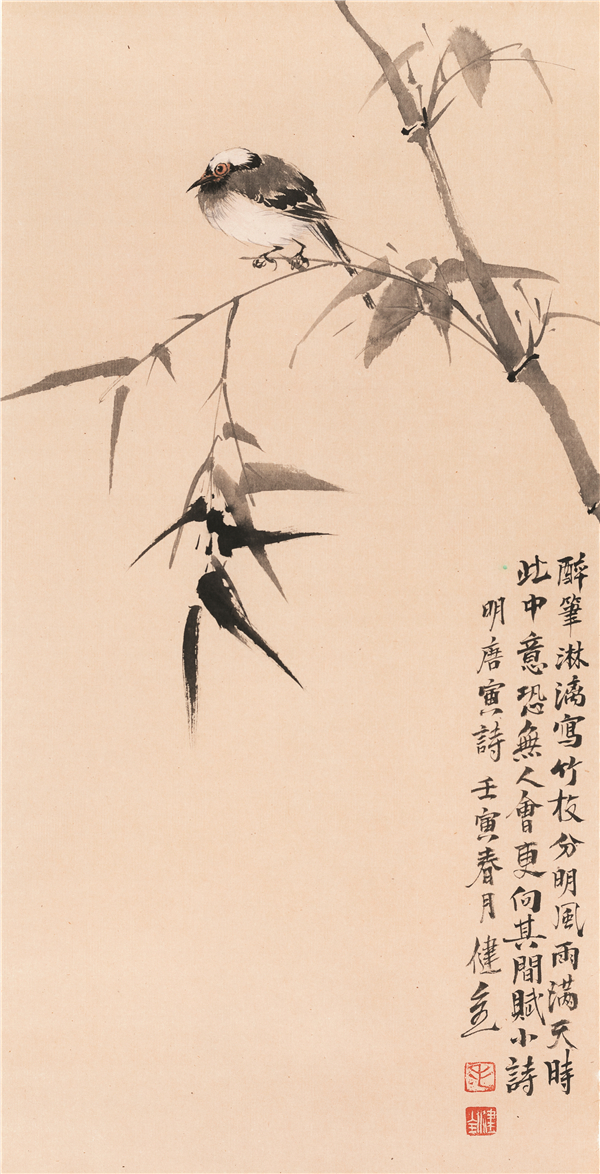 醉筆淋漓寫竹枝分明風雨滿天時
此中意恐無人會更向其間賦小詩
明唐寅詩 壬寅春月 健